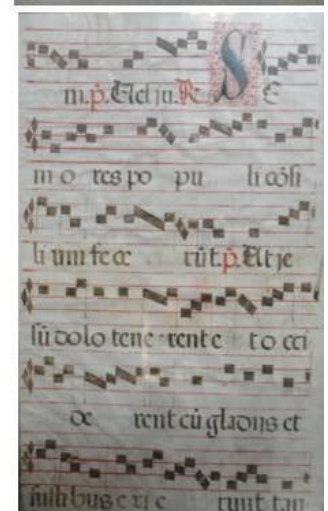 m. p̃. Ad ju. R̃. S E
m o res po pu li cõsi
li um fe ce rũt. p̃. Ut je
sũ dolo tene rent e t o cci
de rent cũ gladijs et
fusti bus e xi e runt tan